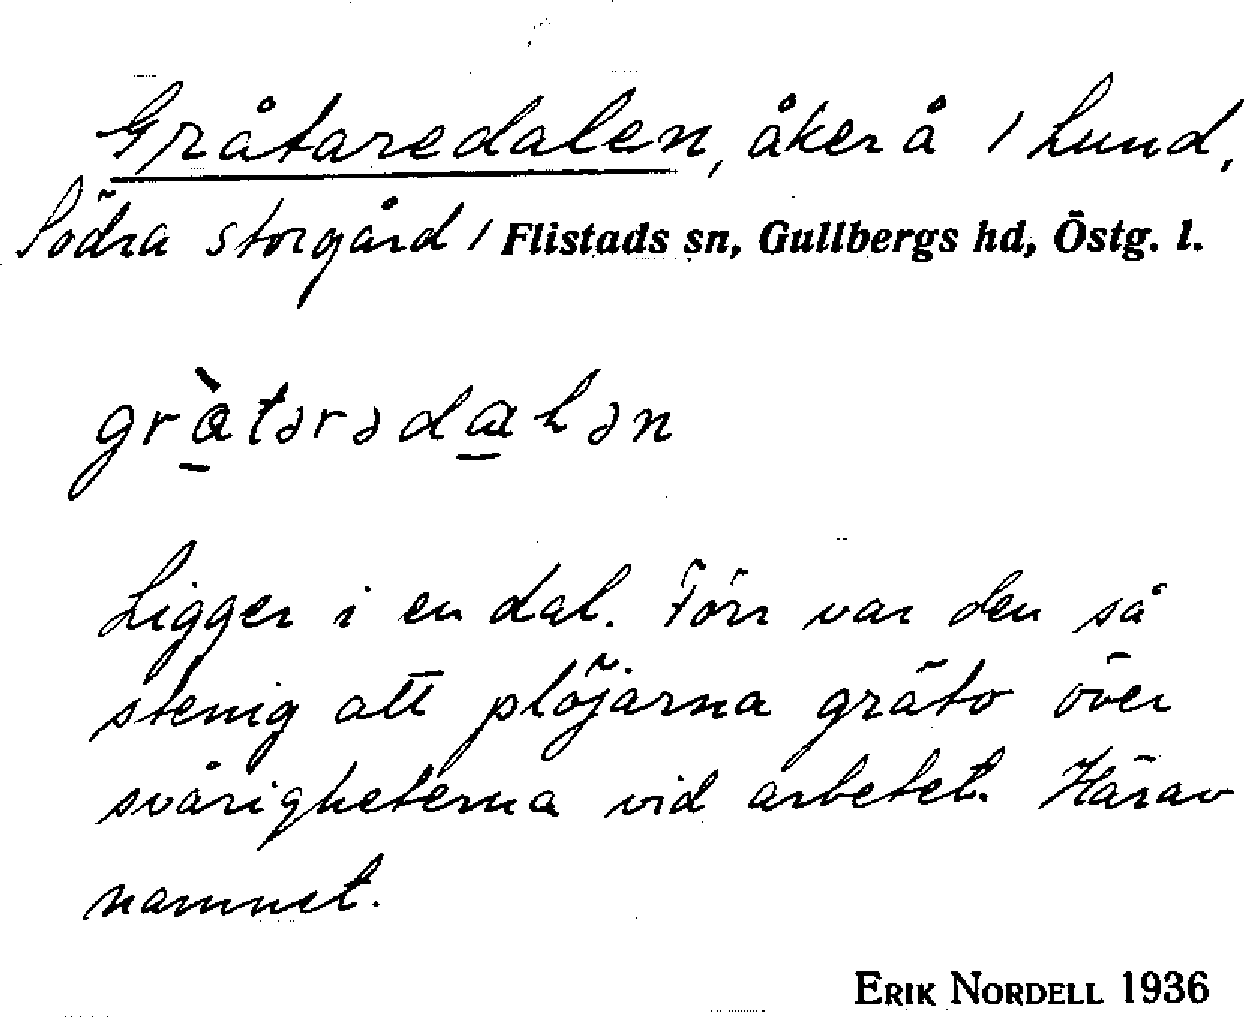 Gråtaredalen, åker å / Lund,
Södra storgård / Flistads sn, Gullbergs hd, Östg. l.
gràtərədalən
Ligger i en dal. Förr var den så
stenig att plöjarna gräto över
svårigheterna vid arbetet. Härav
namnet.
ERIK NORDELL 1936